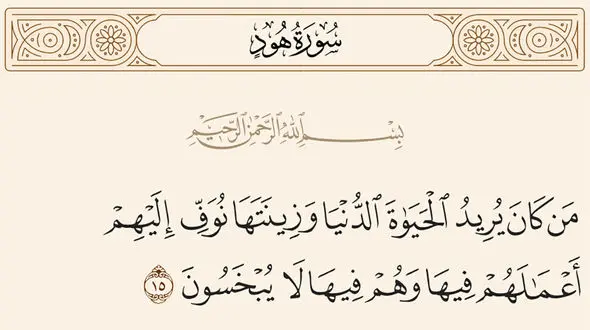 سُورَةُ هُودٍ
بِسْمِ ٱللَّهِ ٱلرَّحْمَٰنِ ٱلرَّحِيمِ
مَن كَانَ يُرِيدُ ٱلْحَيَوٰةَ ٱلدُّنْيَا وَزِينَتَهَا نُوَفِّ إِلَيْهِمْ
أَعْمَـٰلَهُمْ فِيهَا وَهُمْ فِيهَا لَا يُبْخَسُونَ ١٥